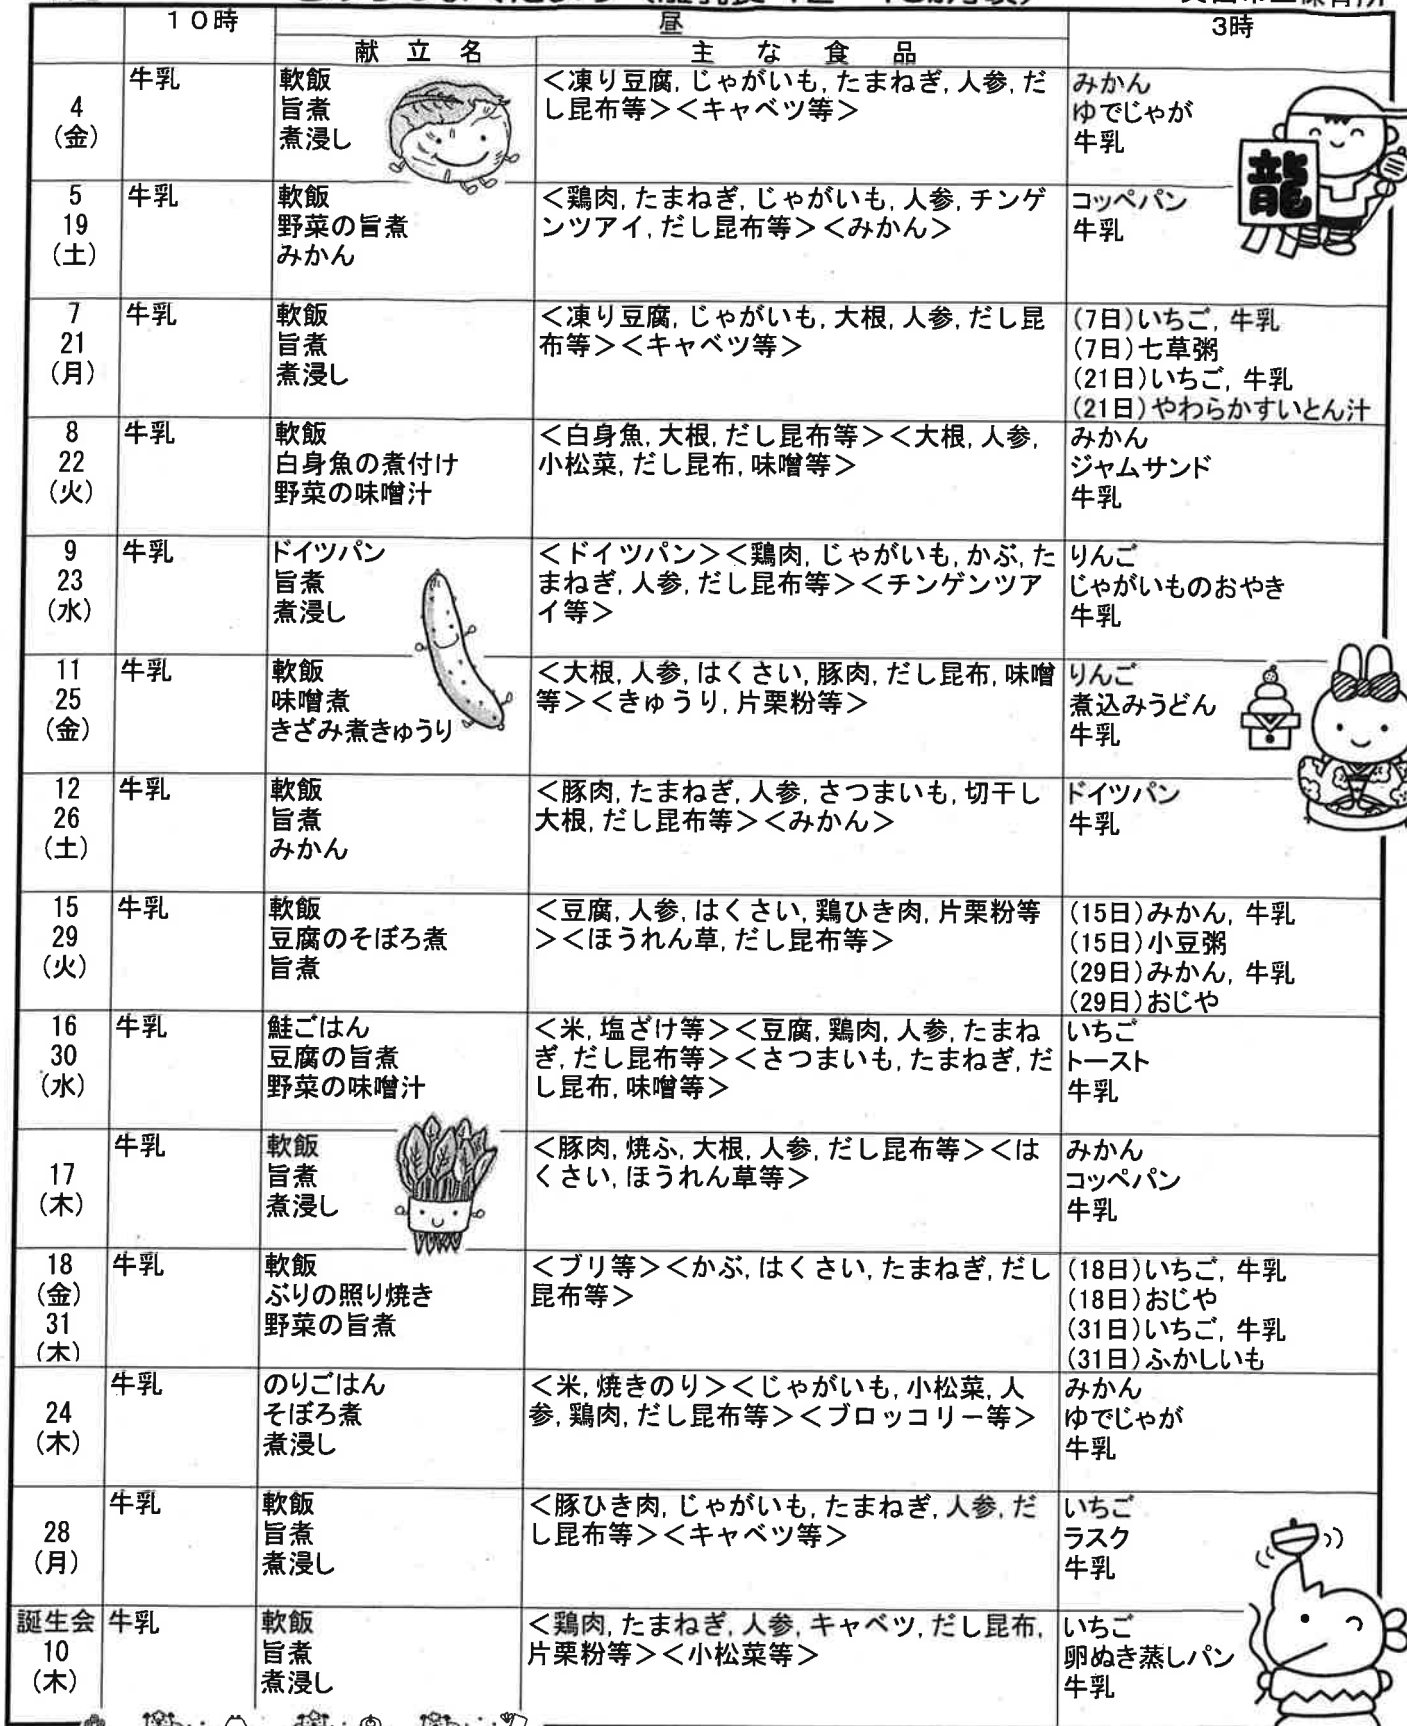 10時
昼
3時
献立名
主な食品
4
(金)
牛乳
軟飯
旨煮
煮浸し
<凍り豆腐,じゃがいも,たまねぎ,人参,だ
し昆布等><キャベツ等>
みかん
ゆでじゃが
牛乳
龍
5
19
(土)
牛乳
軟飯
野菜の旨煮
みかん
<鶏肉,たまねぎ,じゃがいも,人参,チンゲ
ンツアイ,だし昆布等><みかん>
コッペパン
牛乳
7
21
(月)
牛乳
軟飯
旨煮
煮浸し
<凍り豆腐,じゃがいも,大根,人参,だし昆
布等><キャベツ等>
(7日)いちご,牛乳
(7日)七草粥
(21日)いちご,牛乳
(21日)やわらかすいとん汁
8
22
(火)
牛乳
軟飯
白身魚の煮付け
野菜の味噌汁
<白身魚,大根,だし昆布等><大根,人参,
小松菜,だし昆布,味噌等>
みかん
ジャムサンド
牛乳
9
23
(水)
牛乳
ドイツパン
旨煮
煮浸し
<ドイツパン><鶏肉,じゃがいも,かぶ,た
まねぎ,人参,だし昆布等><チンゲンツア
イ等>
りんご
じゃがいものおやき
牛乳
11
25
(金)
牛乳
軟飯
味噌煮
きざみ煮きゅうり
<大根,人参,はくさい,豚肉,だし昆布,味噌
等><きゅうり,片栗粉等>
りんご
煮込みうどん
牛乳
12
26
(土)
牛乳
軟飯
旨煮
みかん
<豚肉,たまねぎ,人参,さつまいも,切干し
大根,だし昆布等><みかん>
ドイツパン
牛乳
15
29
(火)
牛乳
軟飯
豆腐のそぼろ煮
旨煮
<豆腐,人参,はくさい,鶏ひき肉,片栗粉等
><ほうれん草,だし昆布等>
(15日)みかん,牛乳
(15日)小豆粥
(29日)みかん,牛乳
(29日)おじや
16
30
(水)
牛乳
鮭ごはん
豆腐の旨煮
野菜の味噌汁
<米,塩ざけ等><豆腐,鶏肉,人参,たまね
ぎ,だし昆布等><さつまいも,たまねぎ,だ
し昆布,味噌等>
いちご
トースト
牛乳
17
(木)
牛乳
軟飯
旨煮
煮浸し
<豚肉,焼ふ,大根,人参,だし昆布等><は
くさい,ほうれん草等>
みかん
コッペパン
牛乳
18
(金)
31
(木)
牛乳
軟飯
ぶりの照り焼き
野菜の旨煮
<ブリ等><かぶ,はくさい,たまねぎ,だし
昆布等>
(18日)いちご,牛乳
(18日)おじや
(31日)いちご,牛乳
(31日)ふかしいも
24
(木)
牛乳
のりごはん
そぼろ煮
煮浸し
<米,焼きのり><じゃがいも,小松菜,人
参,鶏肉,だし昆布等><ブロッコリー等>
みかん
ゆでじゃが
牛乳
28
(月)
牛乳
軟飯
旨煮
煮浸し
<豚ひき肉,じゃがいも,たまねぎ,人参,だ
し昆布等><キャベツ等>
いちご
ラスク
牛乳
誕生会
10
(木)
牛乳
軟飯
旨煮
煮浸し
<鶏肉,たまねぎ,人参,キャベツ,だし昆布,
片栗粉等><小松菜等>
いちご
卵ぬき蒸しパン
牛乳